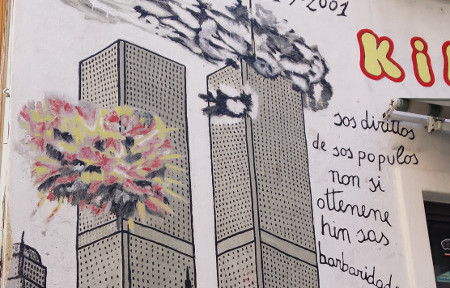 -2001
Ki
sos dirittos
de sos populos
non si
ottenene
hin sas
barbaridade